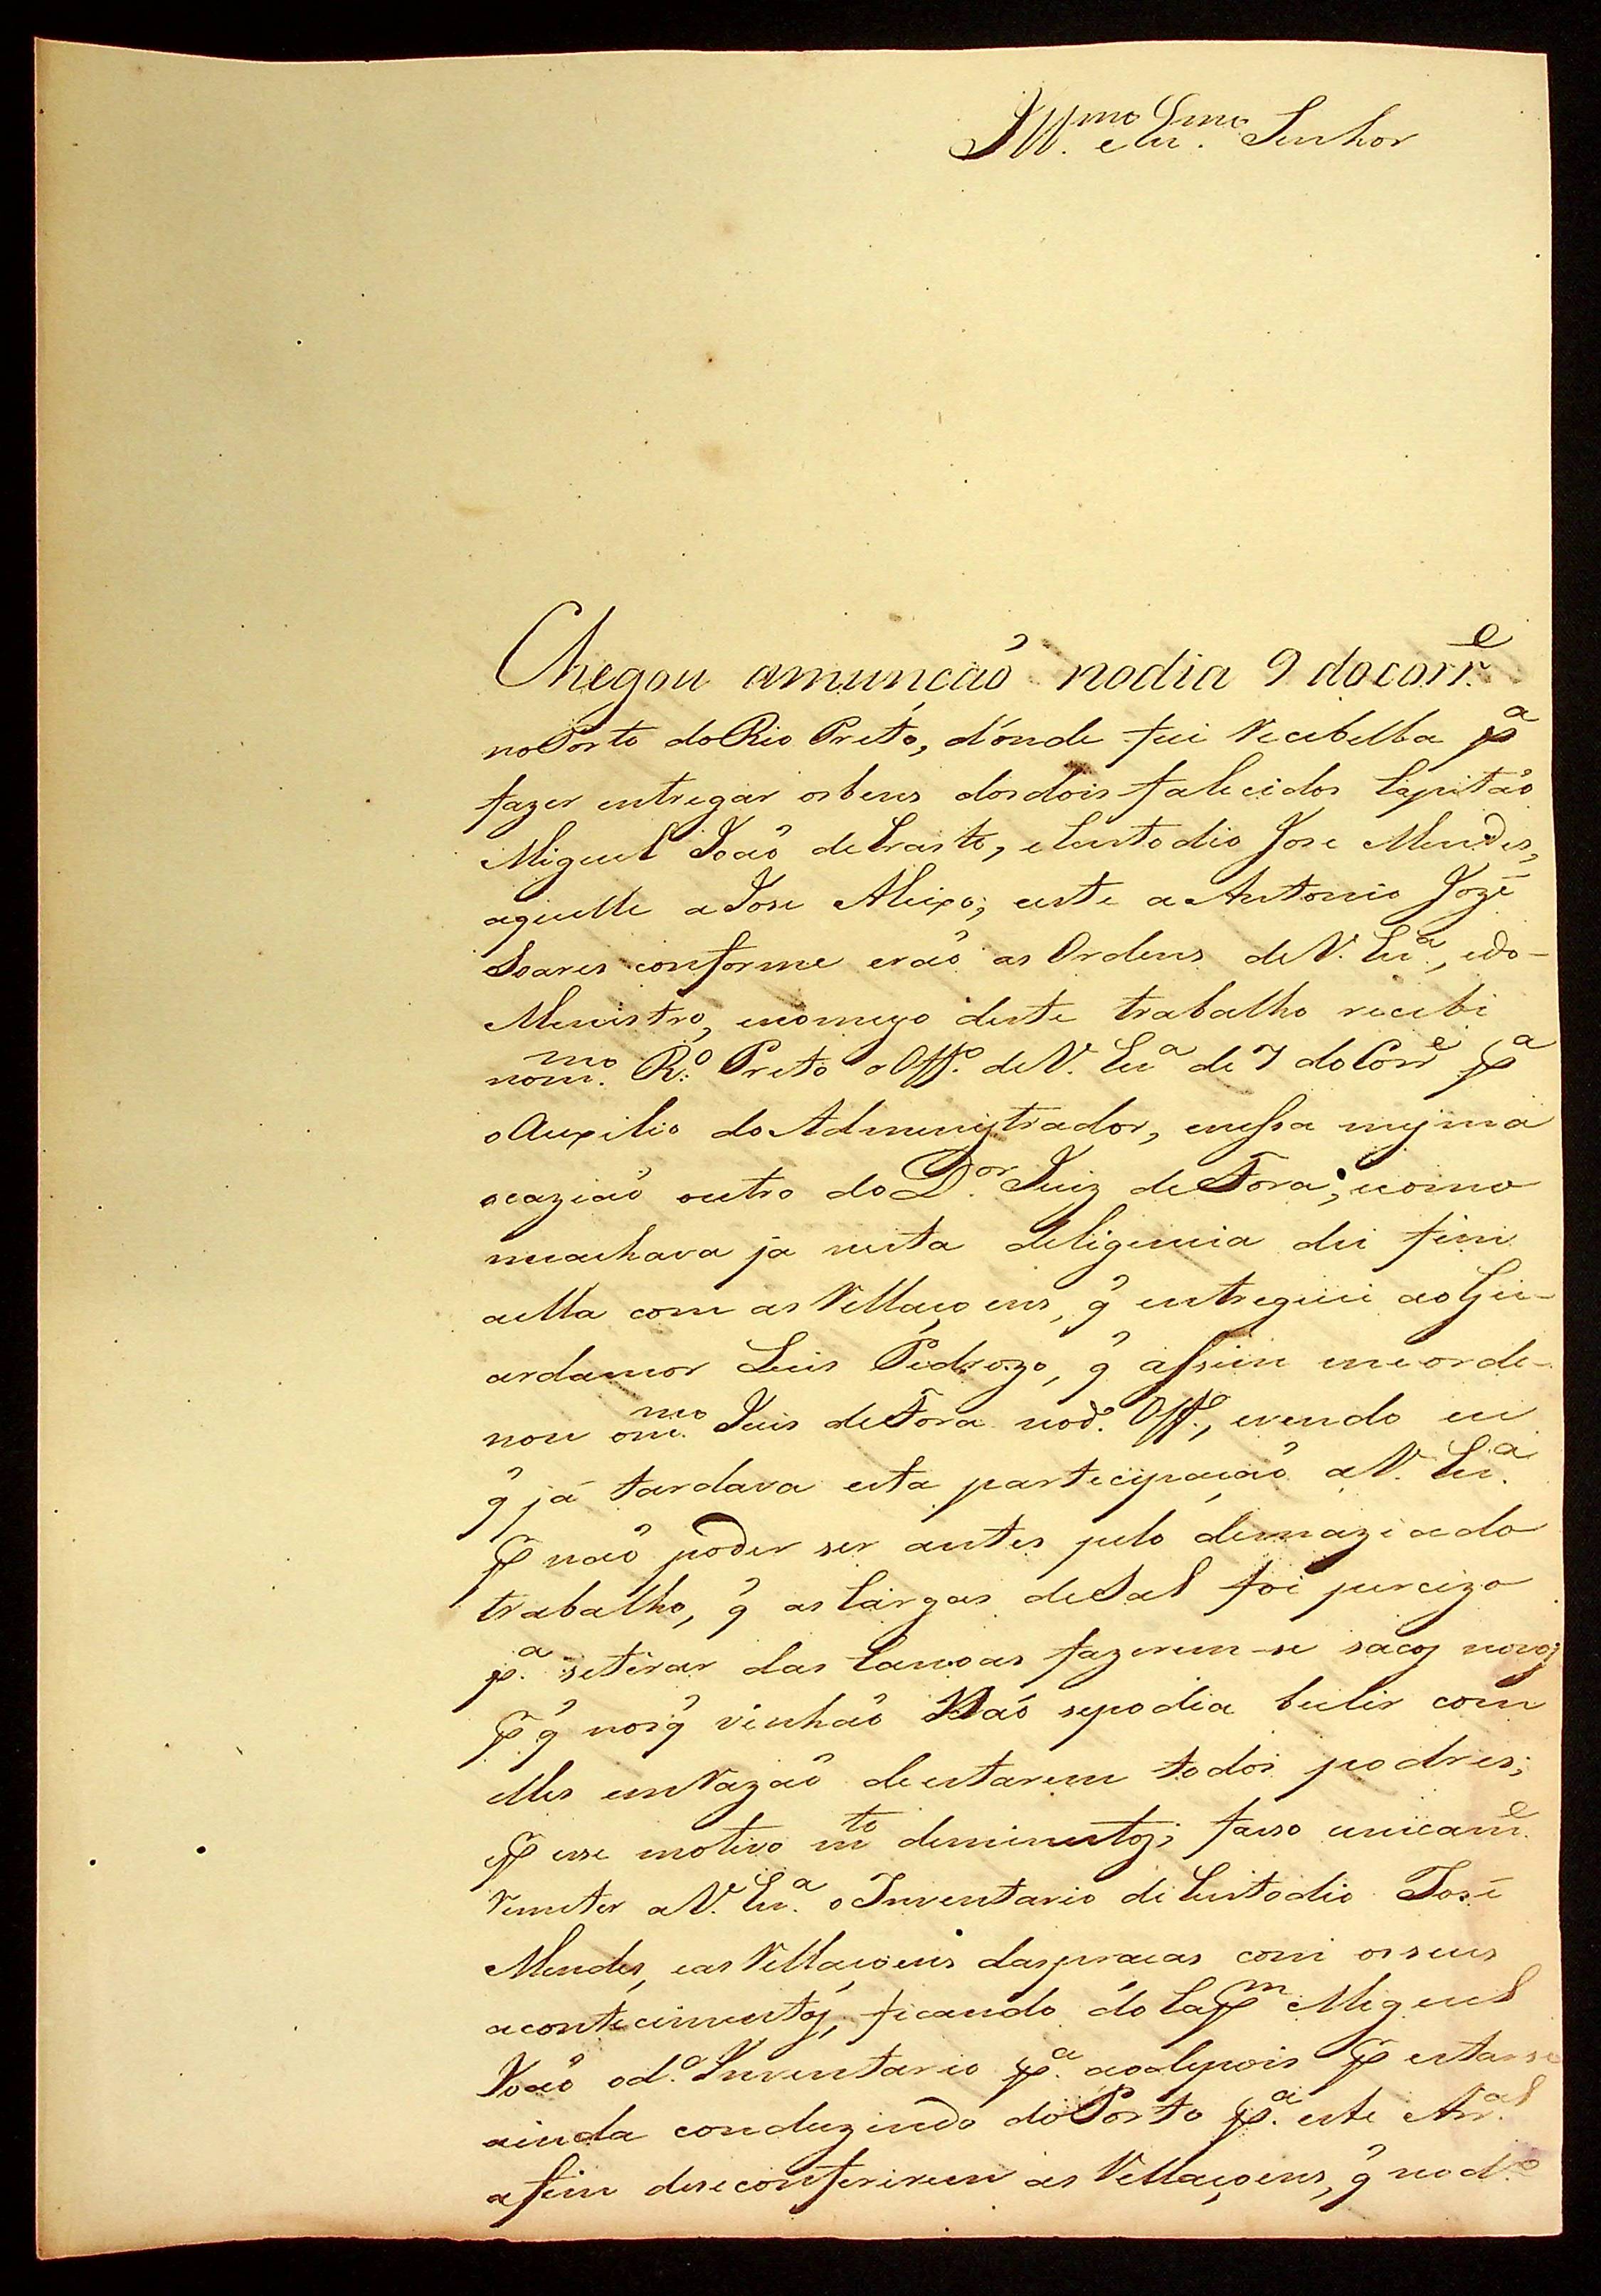 Ill.mo e Ex.mo Senhor
Chegou amunçaõ nodia 9 docorr.e
noPorto doRio Preto, d'onde fui recebella p.a
fazer entregar osbens dosdois falecidos Capitaõ
Miguel Joaõ deCrasto, eCustodio Jose Mendes,
aquelle aJose Aleixo; eeste a Antonio Jozé
Soares conforme eraõ as Ordens deV. Ex.a, edo-
Menistro, enomeyo deste trabalho recebi
nom.mo R.o Preto o Off.o deV. Ex.a de 7 doCorr.e p.a
oAuxilio doAdmenistrador, enessa mesma
ocaziaõ outro doD.or Juiz deFora; ecomo
meachava ja nesta deligencia dei fim
aella com as Rellaçoens, q̃ entreguei aoGu-
ardamor Luis Pedrozo, q̃ assim meorde-
nou om.mo Juis deFora nod.o Off.o, evendo eu
q̃ já tardava esta partecipaçaõ aV. Ex.a
p̃ naõ poder ser antes pelo demaziado
trabalho, q̃ as Cargas deSal foi percizo
p.a setirar das Canoas fazerem-se sacos novos
p̃ q̃ nosq̃ vinhaõ Naõ sepodia bulir com
elles emRazaõ deestarem todos podres;
ep̃ esse motivo m.to deminutos; faso unicam.e
remeter aV. Ex.a oInventario deCustodio José
Mendes, eas Rellaçoens daspraças com osseus
acontecimentos, ficando do Cap.m Miguel
Joaõ od.o Inventario p.a aodepois p̃ estarse
ainda conduzindo doPorto p.a este Arr.al
afim deseconferirem as Rellaçoens, q̃ nod.o